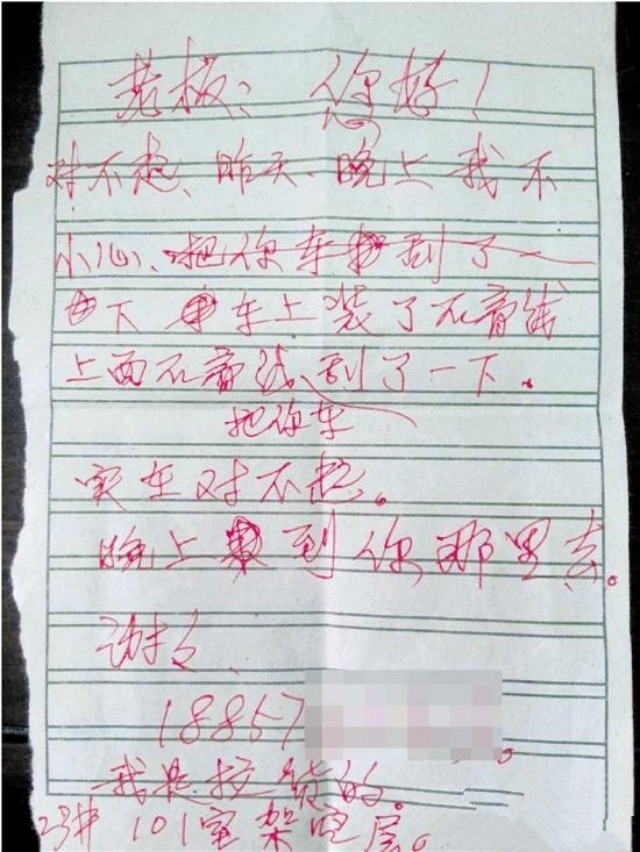 老板：您好！
对不起、昨天、晚上我不
小心、把你车刮了一
下 车上装了石膏线
上面石膏线刮了一下。
把你车
实在对不起。
晚上到你那里去。
谢谢、
18857
我是拉货的。
101室架空层。